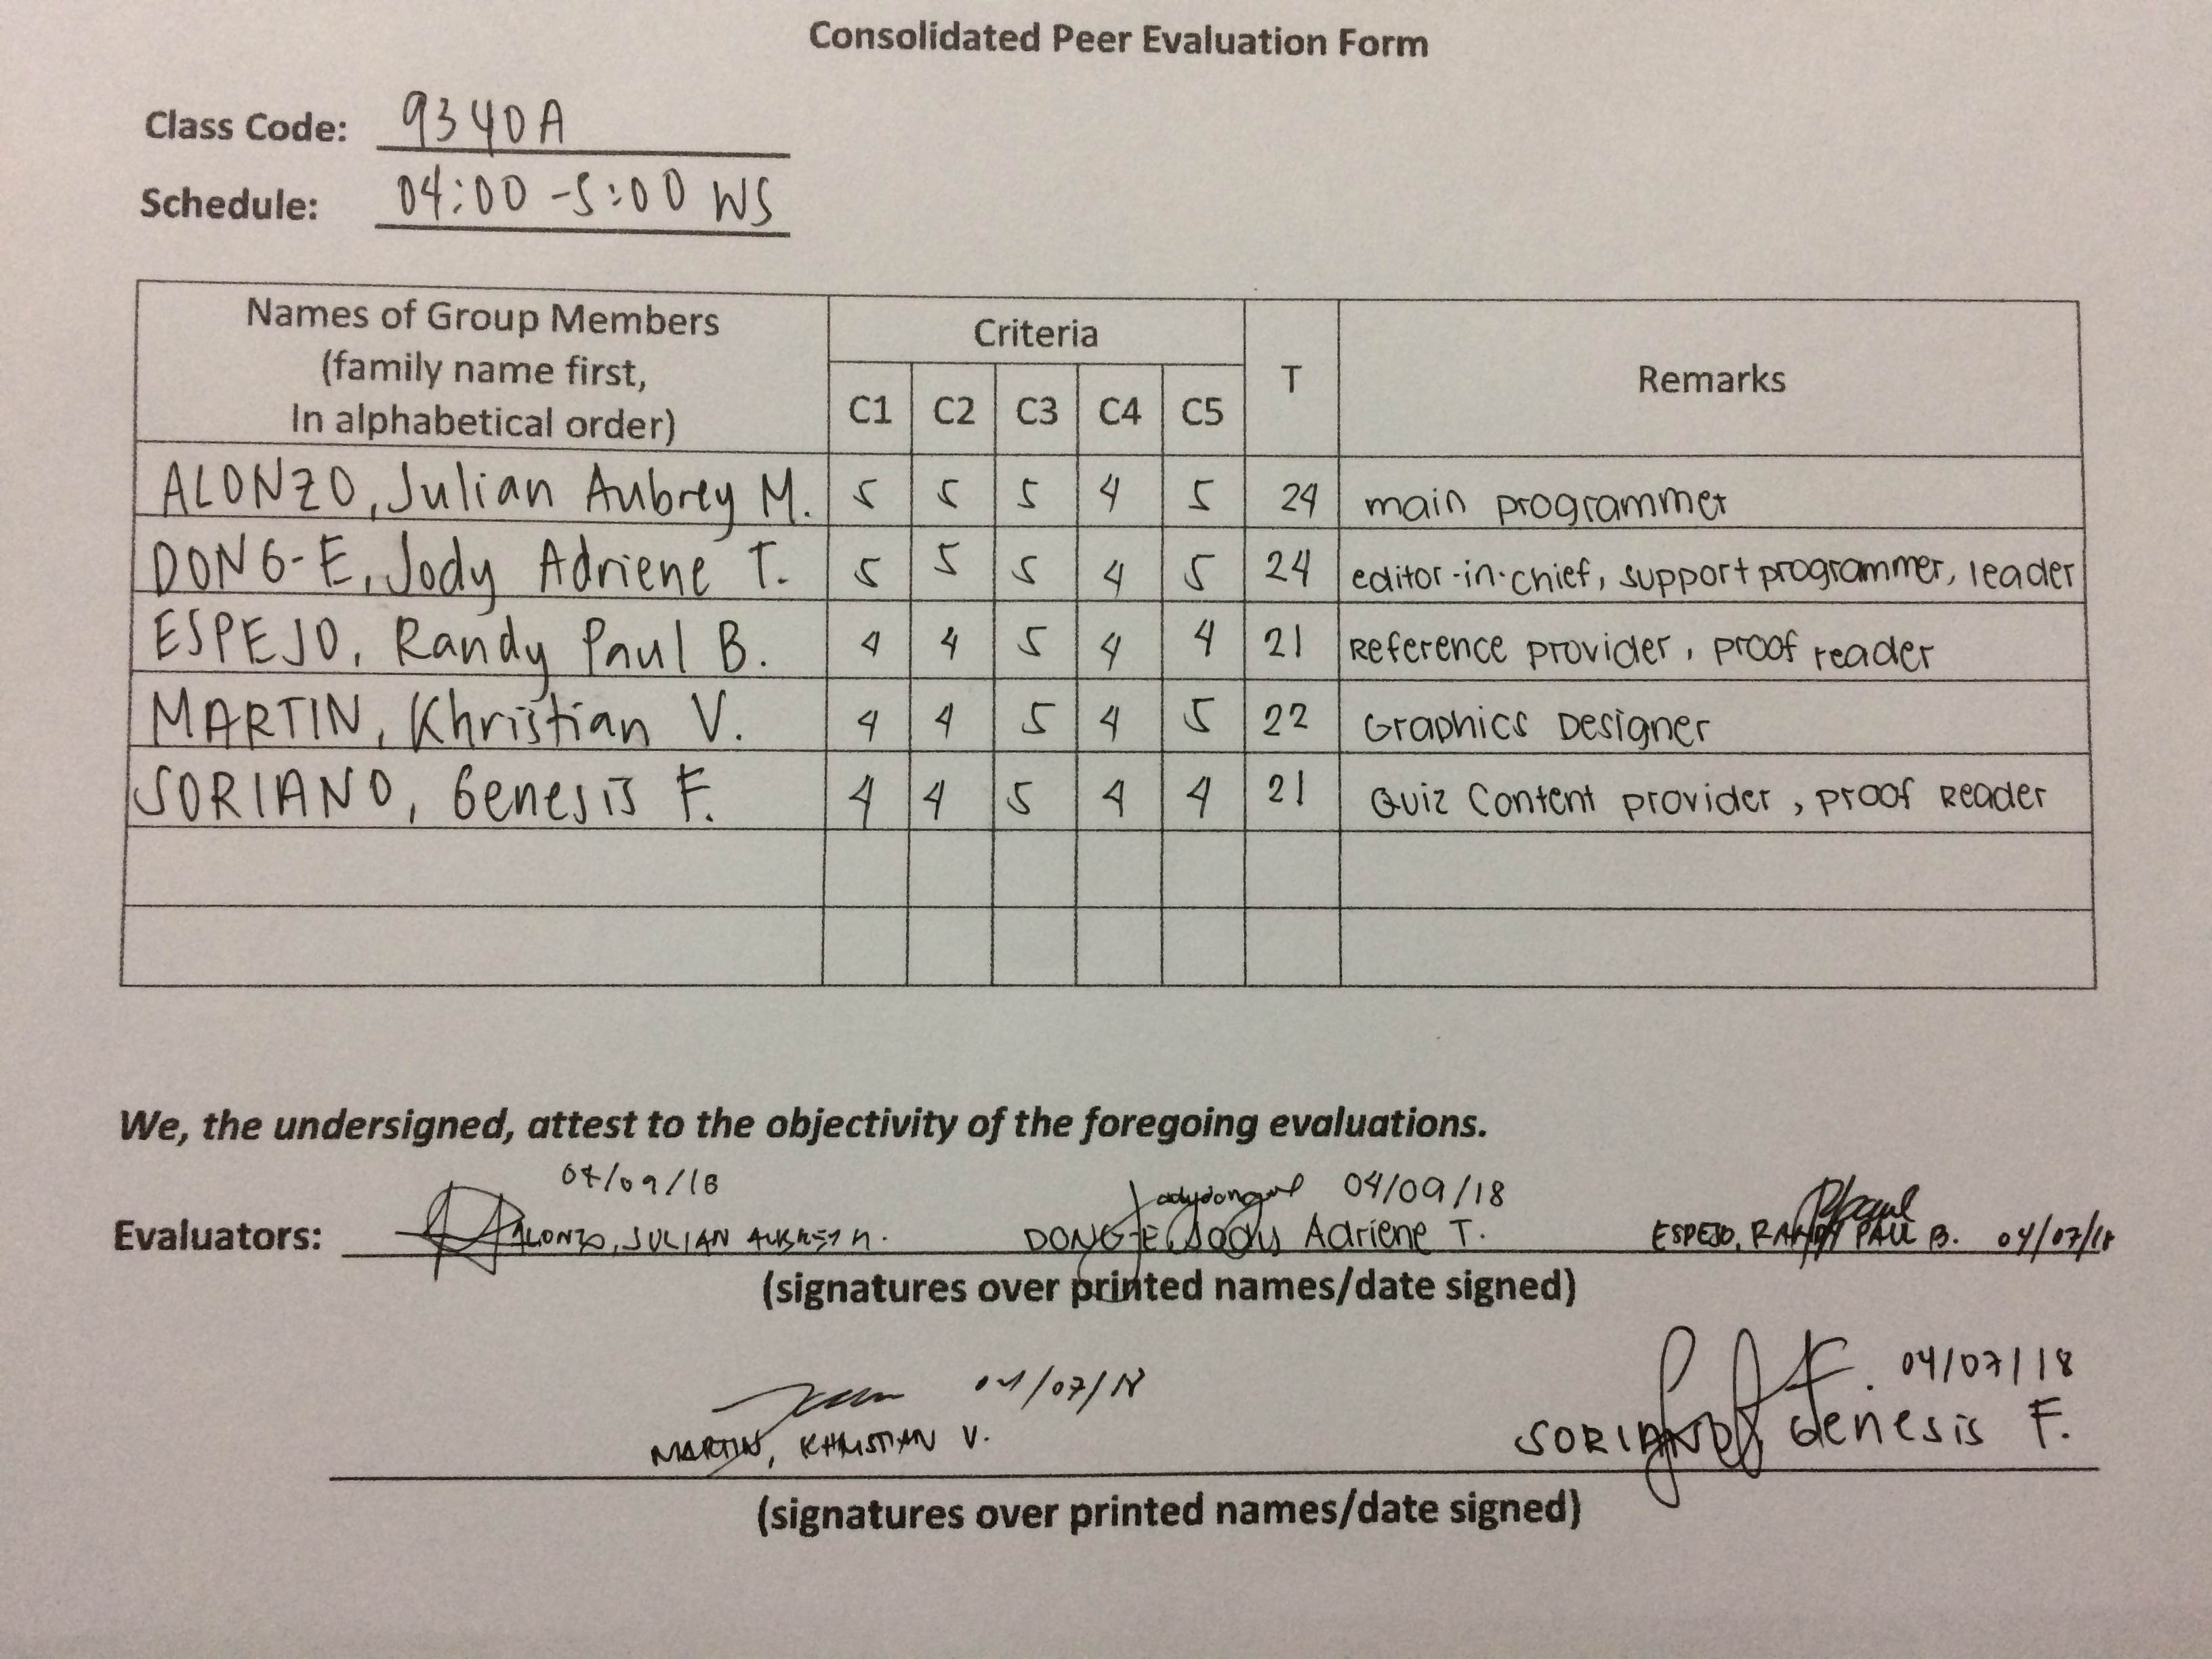 Consolidated Peer Evaluation Form
Class Code: 9340A
Schedule: 04:00 -5:00 WS
Names of Group Members (family name first, In alphabetical order) Criteria T Remarks
C1 C2 C3 C4 C5
ALONZO, Julian Aubrey M. 5 5 5 4 5 24 main programmer
DONG-E, Jody Adriene T. 5 5 5 4 5 24 editor-in-chief, support programmer, leader
ESPEJO, Randy Paul B. 4 4 5 4 4 21 Reference provider, proof reader
MARTIN, Khristian V. 4 4 5 4 5 22 Graphics Designer
SORIANO, Genesis F. 4 4 5 4 4 21 Quiz Content provider, proof Reader
We, the undersigned, attest to the objectivity of the foregoing evaluations.
04/09/18 04/09/18
Evaluators: ALONZO, JULIAN AUBREY M. DONG-E, Jody Adriene T. ESPEJO, RANDY PAUL B. 04/07/18
(signatures over printed names/date signed)
04/07/18 04/07/18
MARTIN, KHRISTIAN V. SORIANO, Genesis F.
(signatures over printed names/date signed)